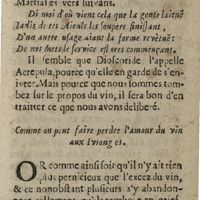 Martial és vers suivans.
Di moi d'où vient cela que la gente laituë
Iadis de tes Aieuls les soupers finissant,
D'un autre usage aiant la forme revétuë:
De nos mets le service est ores commençant.
Il semble que Dioscoride l'appelle
Acrepula, pource qu'elle en garde de s'en-
ivrer. Mais pource que nous sommes tom-
bez sur le propos du vin, il sera bon d'en
traitter ce que nous avons deliberé.
Comme on peut faire perdre l'amour du vin
aux Ivrongnes.
OR comme ainsi soit qu'il n'y ait rien
plus pernicieux que l'excez du vin,
& ce nonobstant plusieurs s'y abandon-